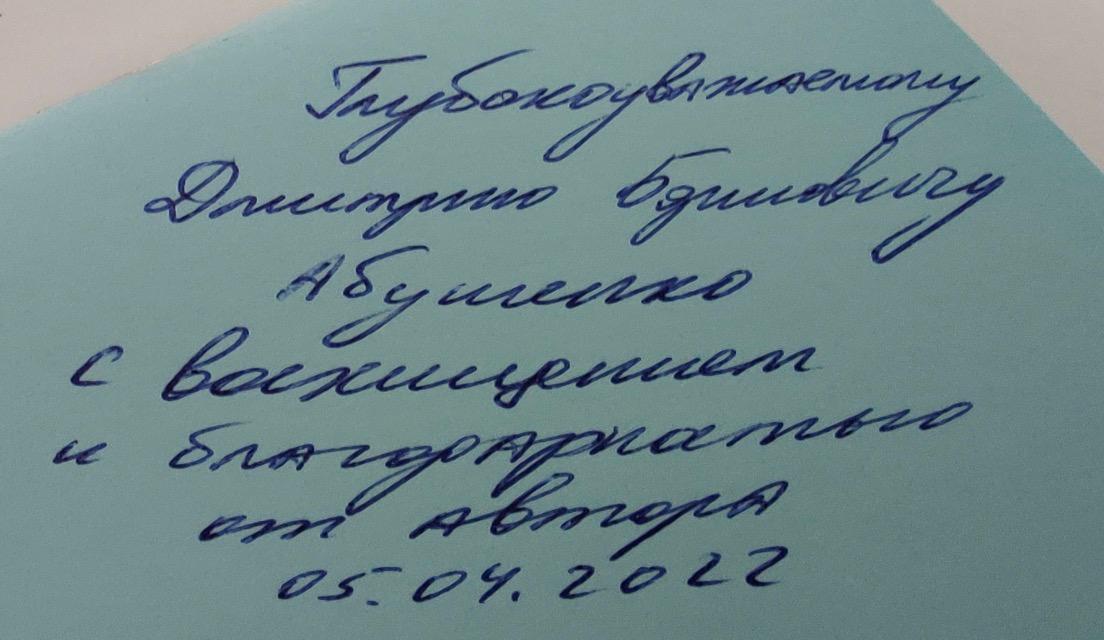 Глубокоуважаемому
Дмитрию Борисовичу
Абушенко
с восхищением
и благодарностью
от автора
05.04.2022